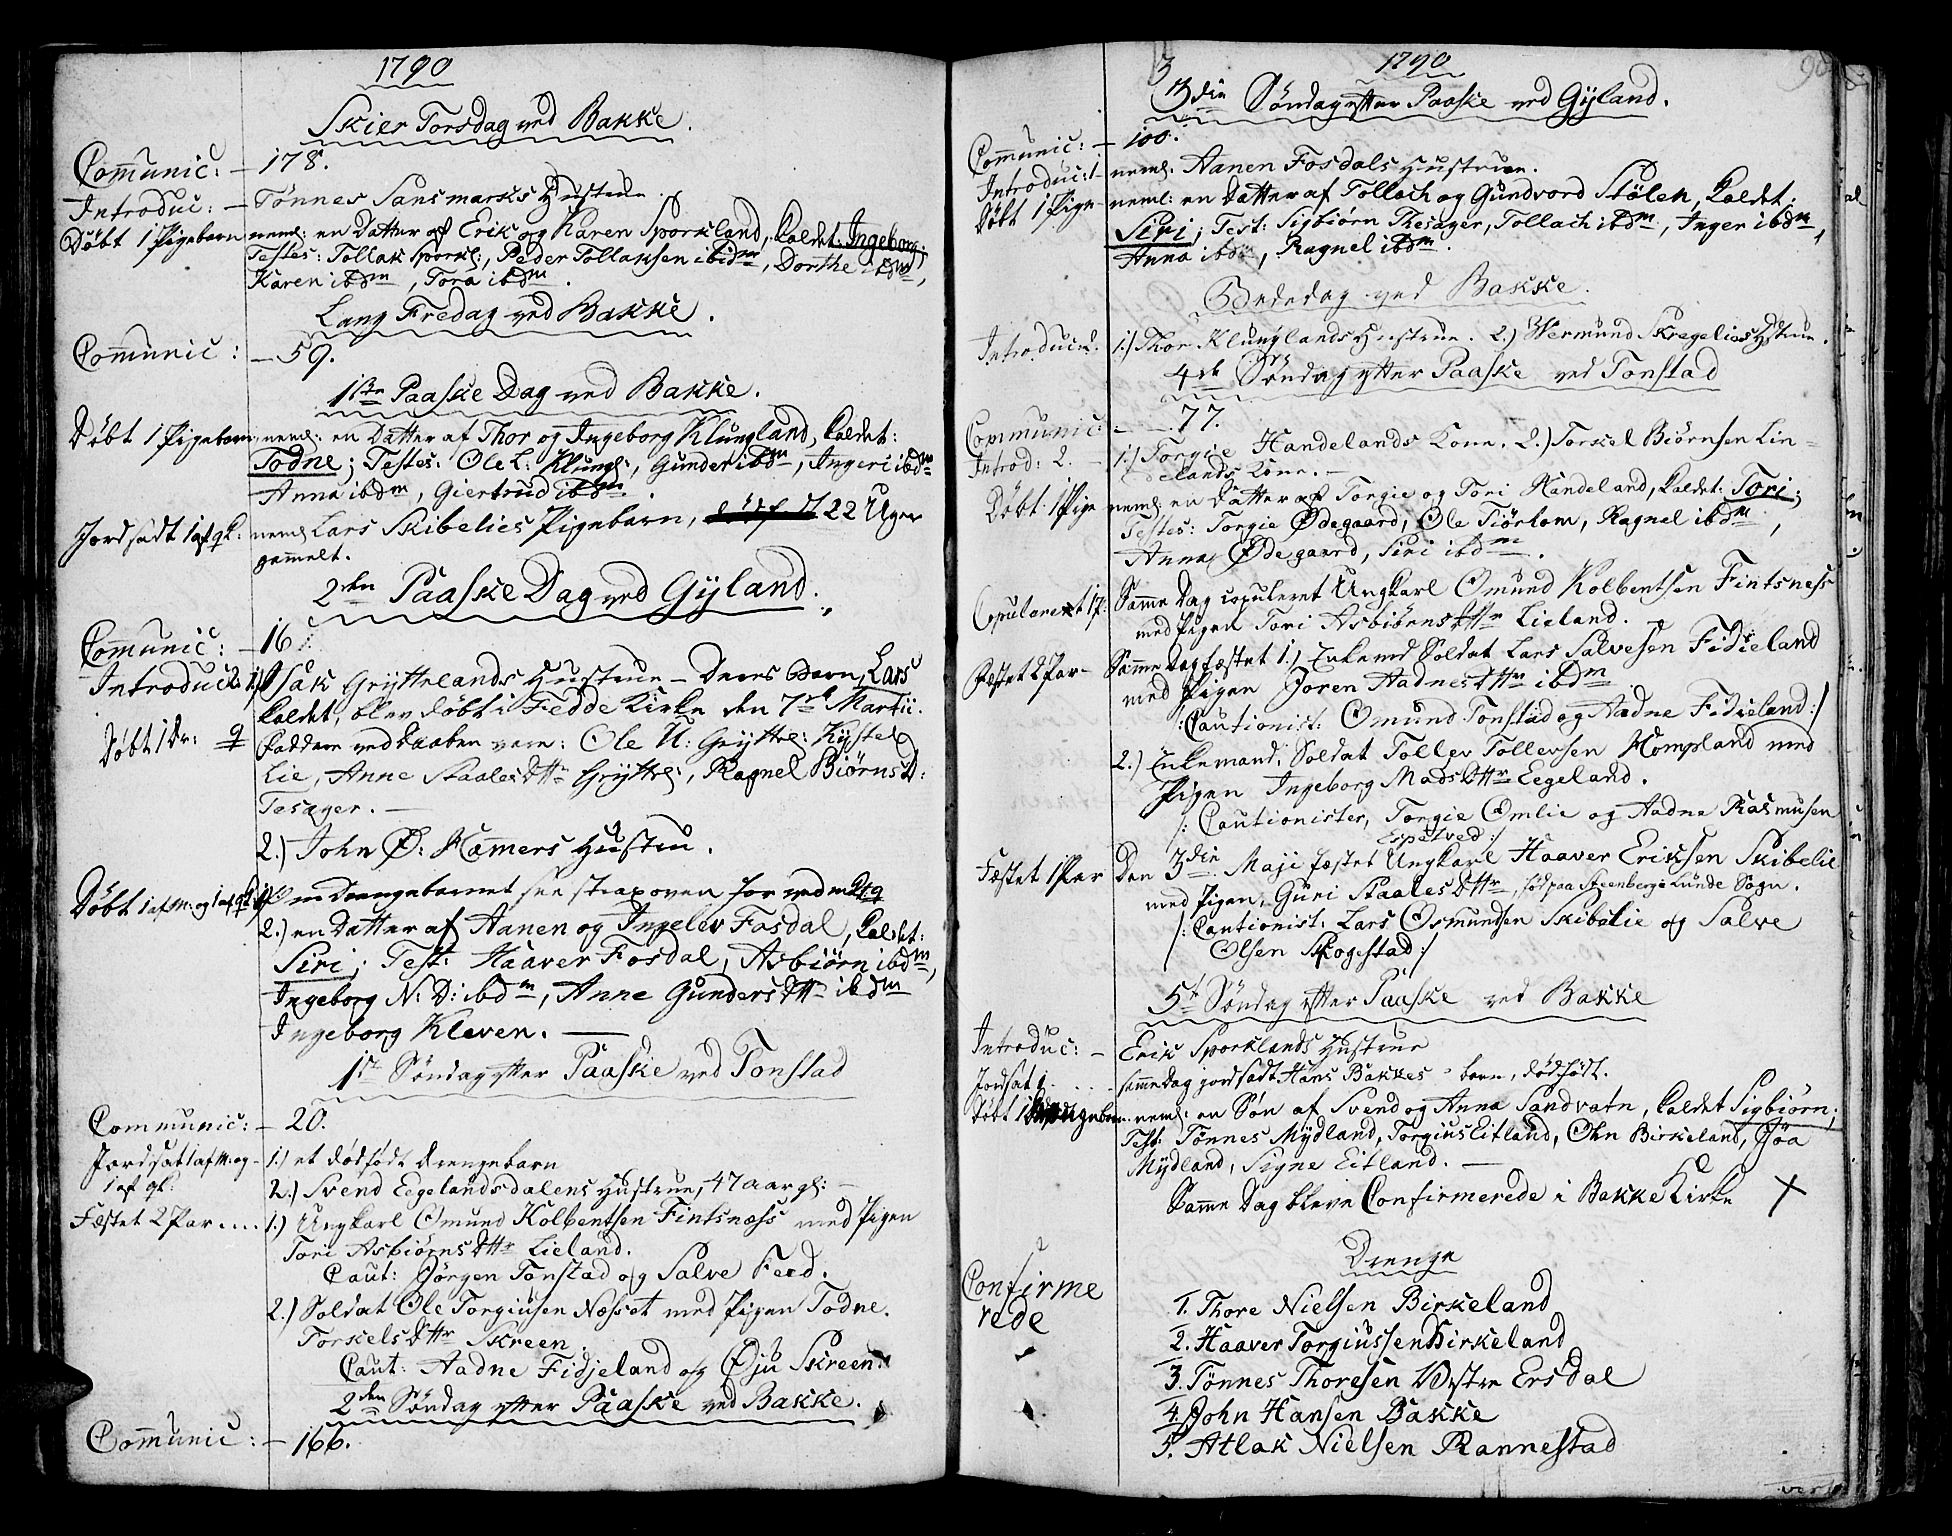 1790
Skier Torsdag ved Bakke.
Comunic: – 178.
Introduc: – Tönnes Sansmarks Hustrue.
Döbt 1 Pigebarn neml: en Datter af Erik og Karen Sporkland, kaldet: Ingeborg;
Testes: Tollak Sporkl:, Peder Tollaksen ibidm, Dorthe ibdm,
Karen ibdm, Tora ibdm.
Lang Fredag ved Bakke.
Comunic: – 59.
1ste Paaske Dag ved Bakke.
Döbt 1 Pigebarn, neml: en Datter af Thor og Ingeborg Klungland, kaldet:
Todne; Testes: Ole L: Klungl:, Gunder ibdm, Ingeri ibdm
Anna ibdm, Giertrud ibdm.
Jordsadt 1 af qk: neml: Lars Skibelies Pigebarn, 22 Uger
gammelt.
2den Paaske Dag ved Gyland.
Comunic: – 16
Introduc: 2. 1.) Isak Gryttelands Hustrue – Deres Barn, Lars
kaldet, blev döbt i Fedde Kirke den 7de Martii.
Döbt 1 Dr: Faddere ved Daaben vare: Ole N: Gryttel: Kystel
Lie, Anne Staalesdttr Gryttel:, Ragnel Biörnsd:
Tesager. –
2.) John Ø: Hamers Hustru.
Döbt 1 af M: og 1 af qk: 1.) Om Drengebarnet see strax oven for ved
2.) en Datter af Aanen og Ingelev Fosdal, kaldet:
Siri; Test: Haaver Fosdal, Asbiörn ibdm,
Ingeborg N: D: ibdm, Anne Gundersdttr ibdm
Ingeborg Kleven. –
1ste Söndag efter Paaske ved Tonstad
Communic: – 20.
Jordsat 1 af M: og – 1.) et dödfödt Drengebarn
1 af qk: 2.) Svend Eegelandsdalens Hustrue, 47 aar gl: –
Fæstet 2 Par .... 1.) Ungkarl Omund Kolbentsen Fintsnæss med Pigen
Tori Asbiörnsdttr Lieland.
Caut: Jörgen Tonstad og Salve Feed.
2.) Soldat Ole Torgiusen Næsset med Pigen Todne
Torkelsdttr Skreen.
Caut: Aadne Fidjeland og Øju Skreen.
2den Söndag efter Paaske ved Bakke.
Comunic: – 166.
1790
3die Söndag efter Paaske ved Gyland.
Communic: – 100.
Introduc: 1 – neml: Aanen Fosdals Hustrue.
Döbt 1 Pige – neml: en Datter af Tollach og Gundvord Stölen, kaldet:
Siri; Test: Sigbiörn Thesager, Tollach ibdm, Inger ibdm,
Anna ibdm, Ragnel ibdm.
Bededag ved Bakke.
Introducd: 1.) Thor Klunglands Hustrue. 2.) Wermund Skregelies Hstrue.
4de Söndag efter Paaske ved Tonstad
Communic: – 77.
Introd: 2. – 1.) Torgie Handelands Kone. 2.) Torkel Biörnsen Lin-
delands Kone. –
Döbt 1 Pige neml: en Datter af Torgie og Tori Handeland, kaldet: Tori;
Testes: Torgie Ødegaard, Ole Tiörhom, Ragnel ibdm,
Anna Ødegaard, Siri ibdm.
Copuleret 1 P: Samme Dag copuleret Ungkarl Omund Kolbentsen Fintsness
med Pigen Tori Asbiörnsdttr Lieland.
Fæstet 2 Par – Samme Dag fæstet 1.) Enkemd Soldat Lars Salvesen Fidieland
med Pigen Joren Aadnesdttr ibdm
/: Cautionist: Omund Tonstad og Aadne Fidieland :/
2.) Enkemand Soldat Tollev Tollevsen Hompland med
Pigen Ingeborg Madsdttr Eegeland.
/: Cautionister, Torgie Omlie og Aadne Rasmusen
Espetved :/
Fæstet 1 Par Den 3die Maji fæstet Ungkarl Haaver Eriksen Skibelie
med Pigen Guri Staalesdttr, födt paa Steenberg i Lunde Sogn.
/: Cautionist: Lars Osmundsen Skibelie og Salve
Olsen Skogestad :/
5te Söndag efter Paaske ved Bakke
Introduc: – Erik Sporklands Hustrue
Jordsat 1. . . . . samme Dag jordsadt Hans Bakkes barn, dödfödt.
Döbt 1 neml: en Sön af Svend og Anna Sandvatn, kaldet Sigbiörn;
Test: Tönnes Mydland, Torgius Eitland, Ohn Birkeland, Jöa
Mydland, Signe Eitland. –
Samme Dag bleve Confirmerede i Bakke Kirke
Drenge
Confirme
rede
1. Thore Nielsen Birkeland
2. Haaver Torgiussen Birkeland
3. Tönnes Thoresen Østre Ersdal
4. John Hansen Bakke
5. Atlak Nielsen Rannestad